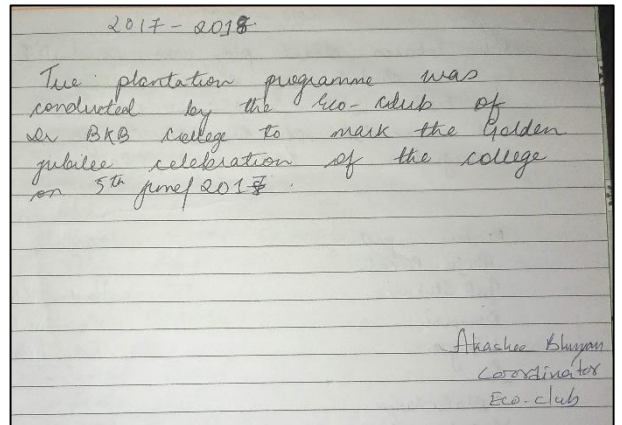 2017-2018.
Tree plantation programme was
conducted by the Eco-club of
Dr BKB College to mark the Golden
jubilee celebration of the college
on 5th June/2017.
Akashee Bhuyan
Coordinator
Eco-club